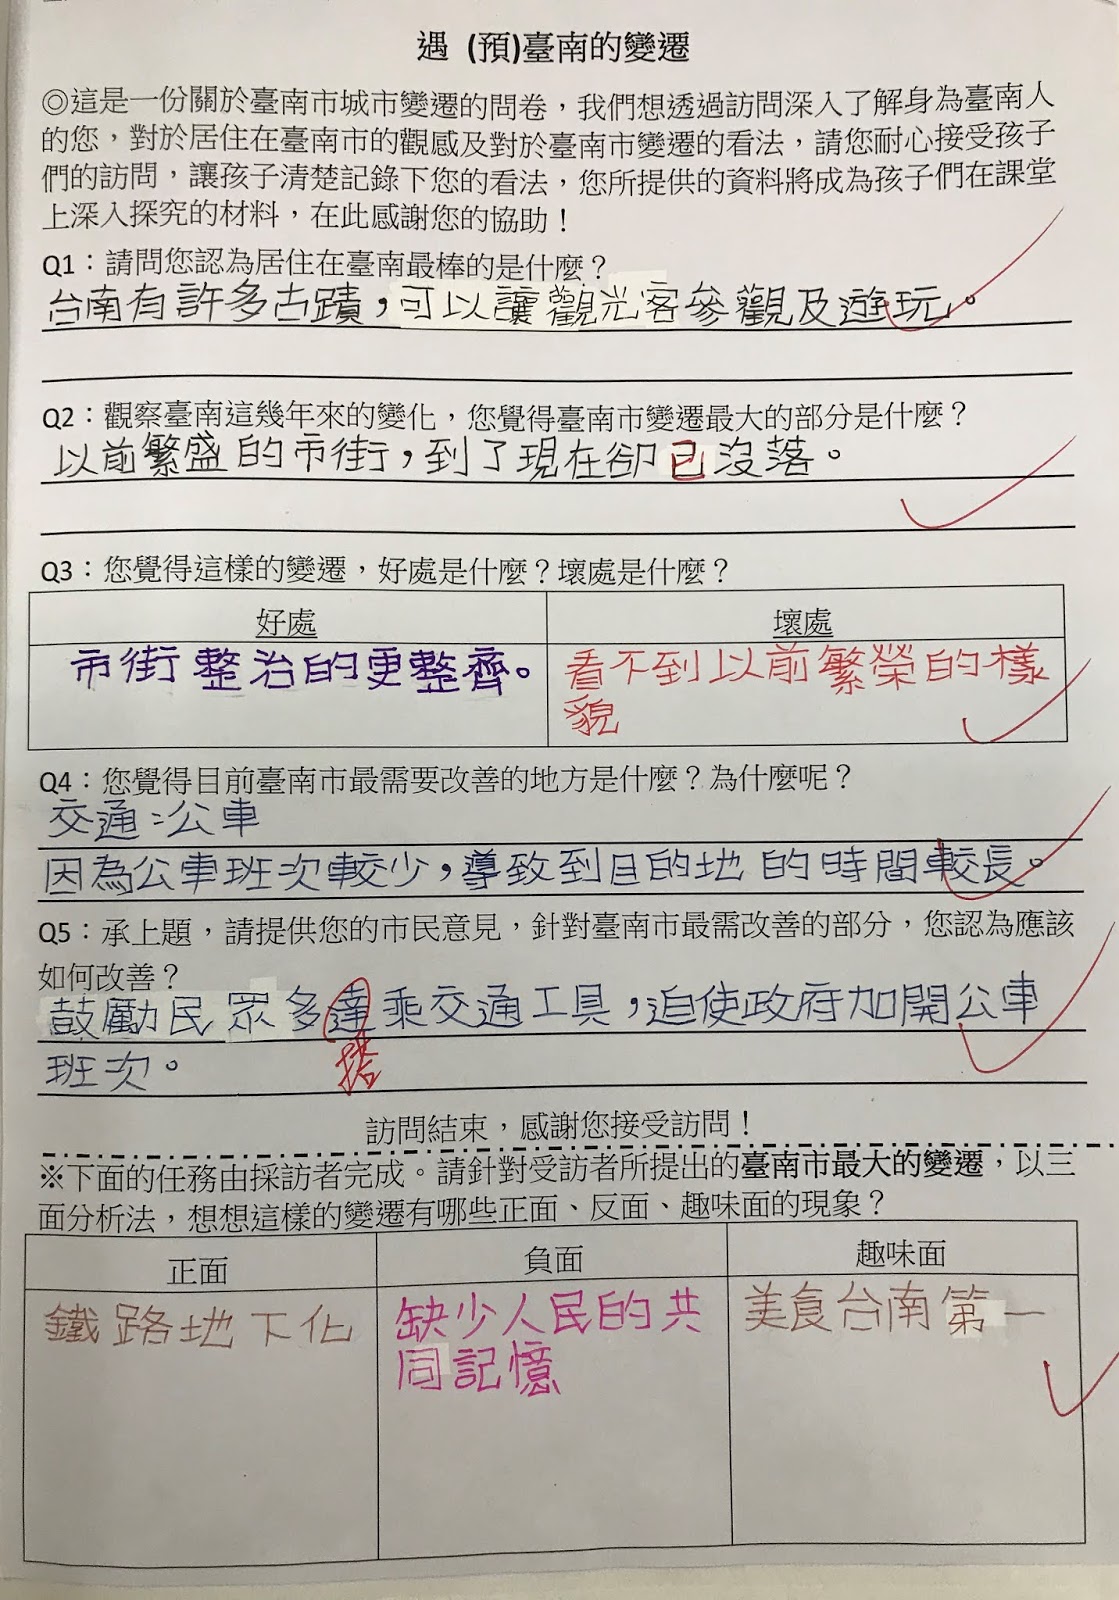 遇 (預)臺南的變遷
◎這是一份關於臺南市城市變遷的問卷，我們想透過訪問深入了解身為臺南人
的您，對於居住在臺南市的觀感及對於臺南市變遷的看法，請您耐心接受孩子
們的訪問，讓孩子清楚記錄下您的看法，您所提供的資料將成為孩子們在課堂
上深入探究的材料，在此感謝您的協助！
Q1：請問您認為居住在臺南最棒的是什麼？
台南有許多古蹟，可以讓觀光客參觀及遊玩。
Q2：觀察臺南這幾年來的變化，您覺得臺南市變遷最大的部分是什麼？
以前繁盛的市街，到了現在卻已沒落。
Q3：您覺得這樣的變遷，好處是什麼？壞處是什麼？
好處
壞處
市街整治的更整齊。
看不到以前繁榮的樣
貌
Q4：您覺得目前臺南市最需要改善的地方是什麼？為什麼呢？
交通：公車
因為公車班次較少，導致到目的地的時間較長。
Q5：承上題，請提供您的市民意見，針對臺南市最需改善的部分，您認為應該
如何改善？
鼓勵民眾多達乘交通工具，迫使政府加開公車
搭
班次。
訪問結束，感謝您接受訪問！
※下面的任務由採訪者完成。請針對受訪者所提出的臺南市最大的變遷，以三
面分析法，想想這樣的變遷有哪些正面、反面、趣味面的現象？
正面
負面
趣味面
鐵路地下化
缺少人民的共
同記憶
美食台南第一